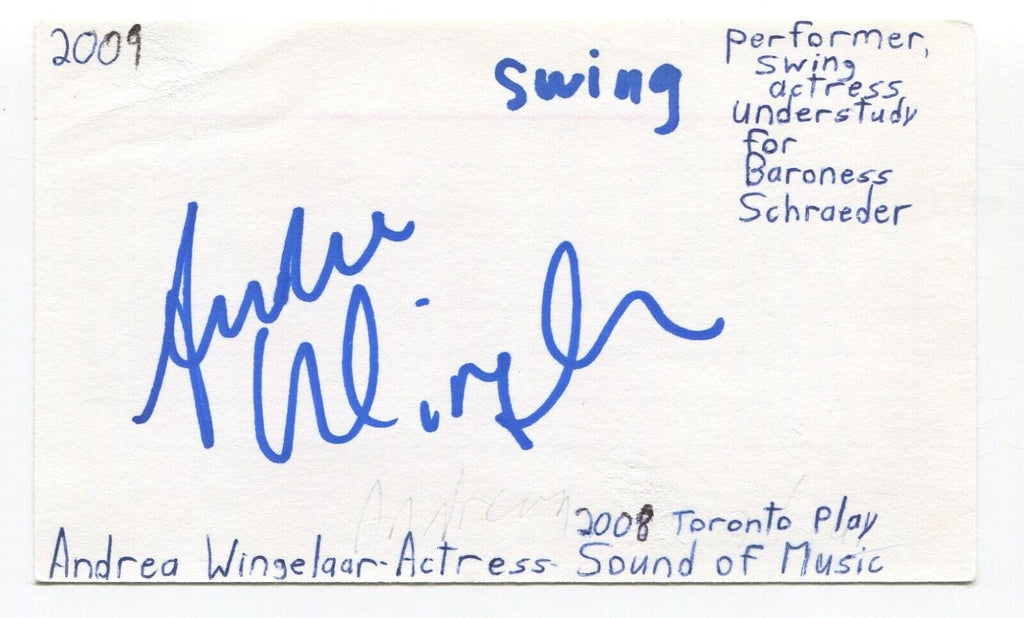 2009
swing
performer,
swing
actress
understudy
for
Baroness
Schraeder
Andrea
Wingelaar
2008 Toronto Play
Andrea Wingelaar-Actress- Sound of Music